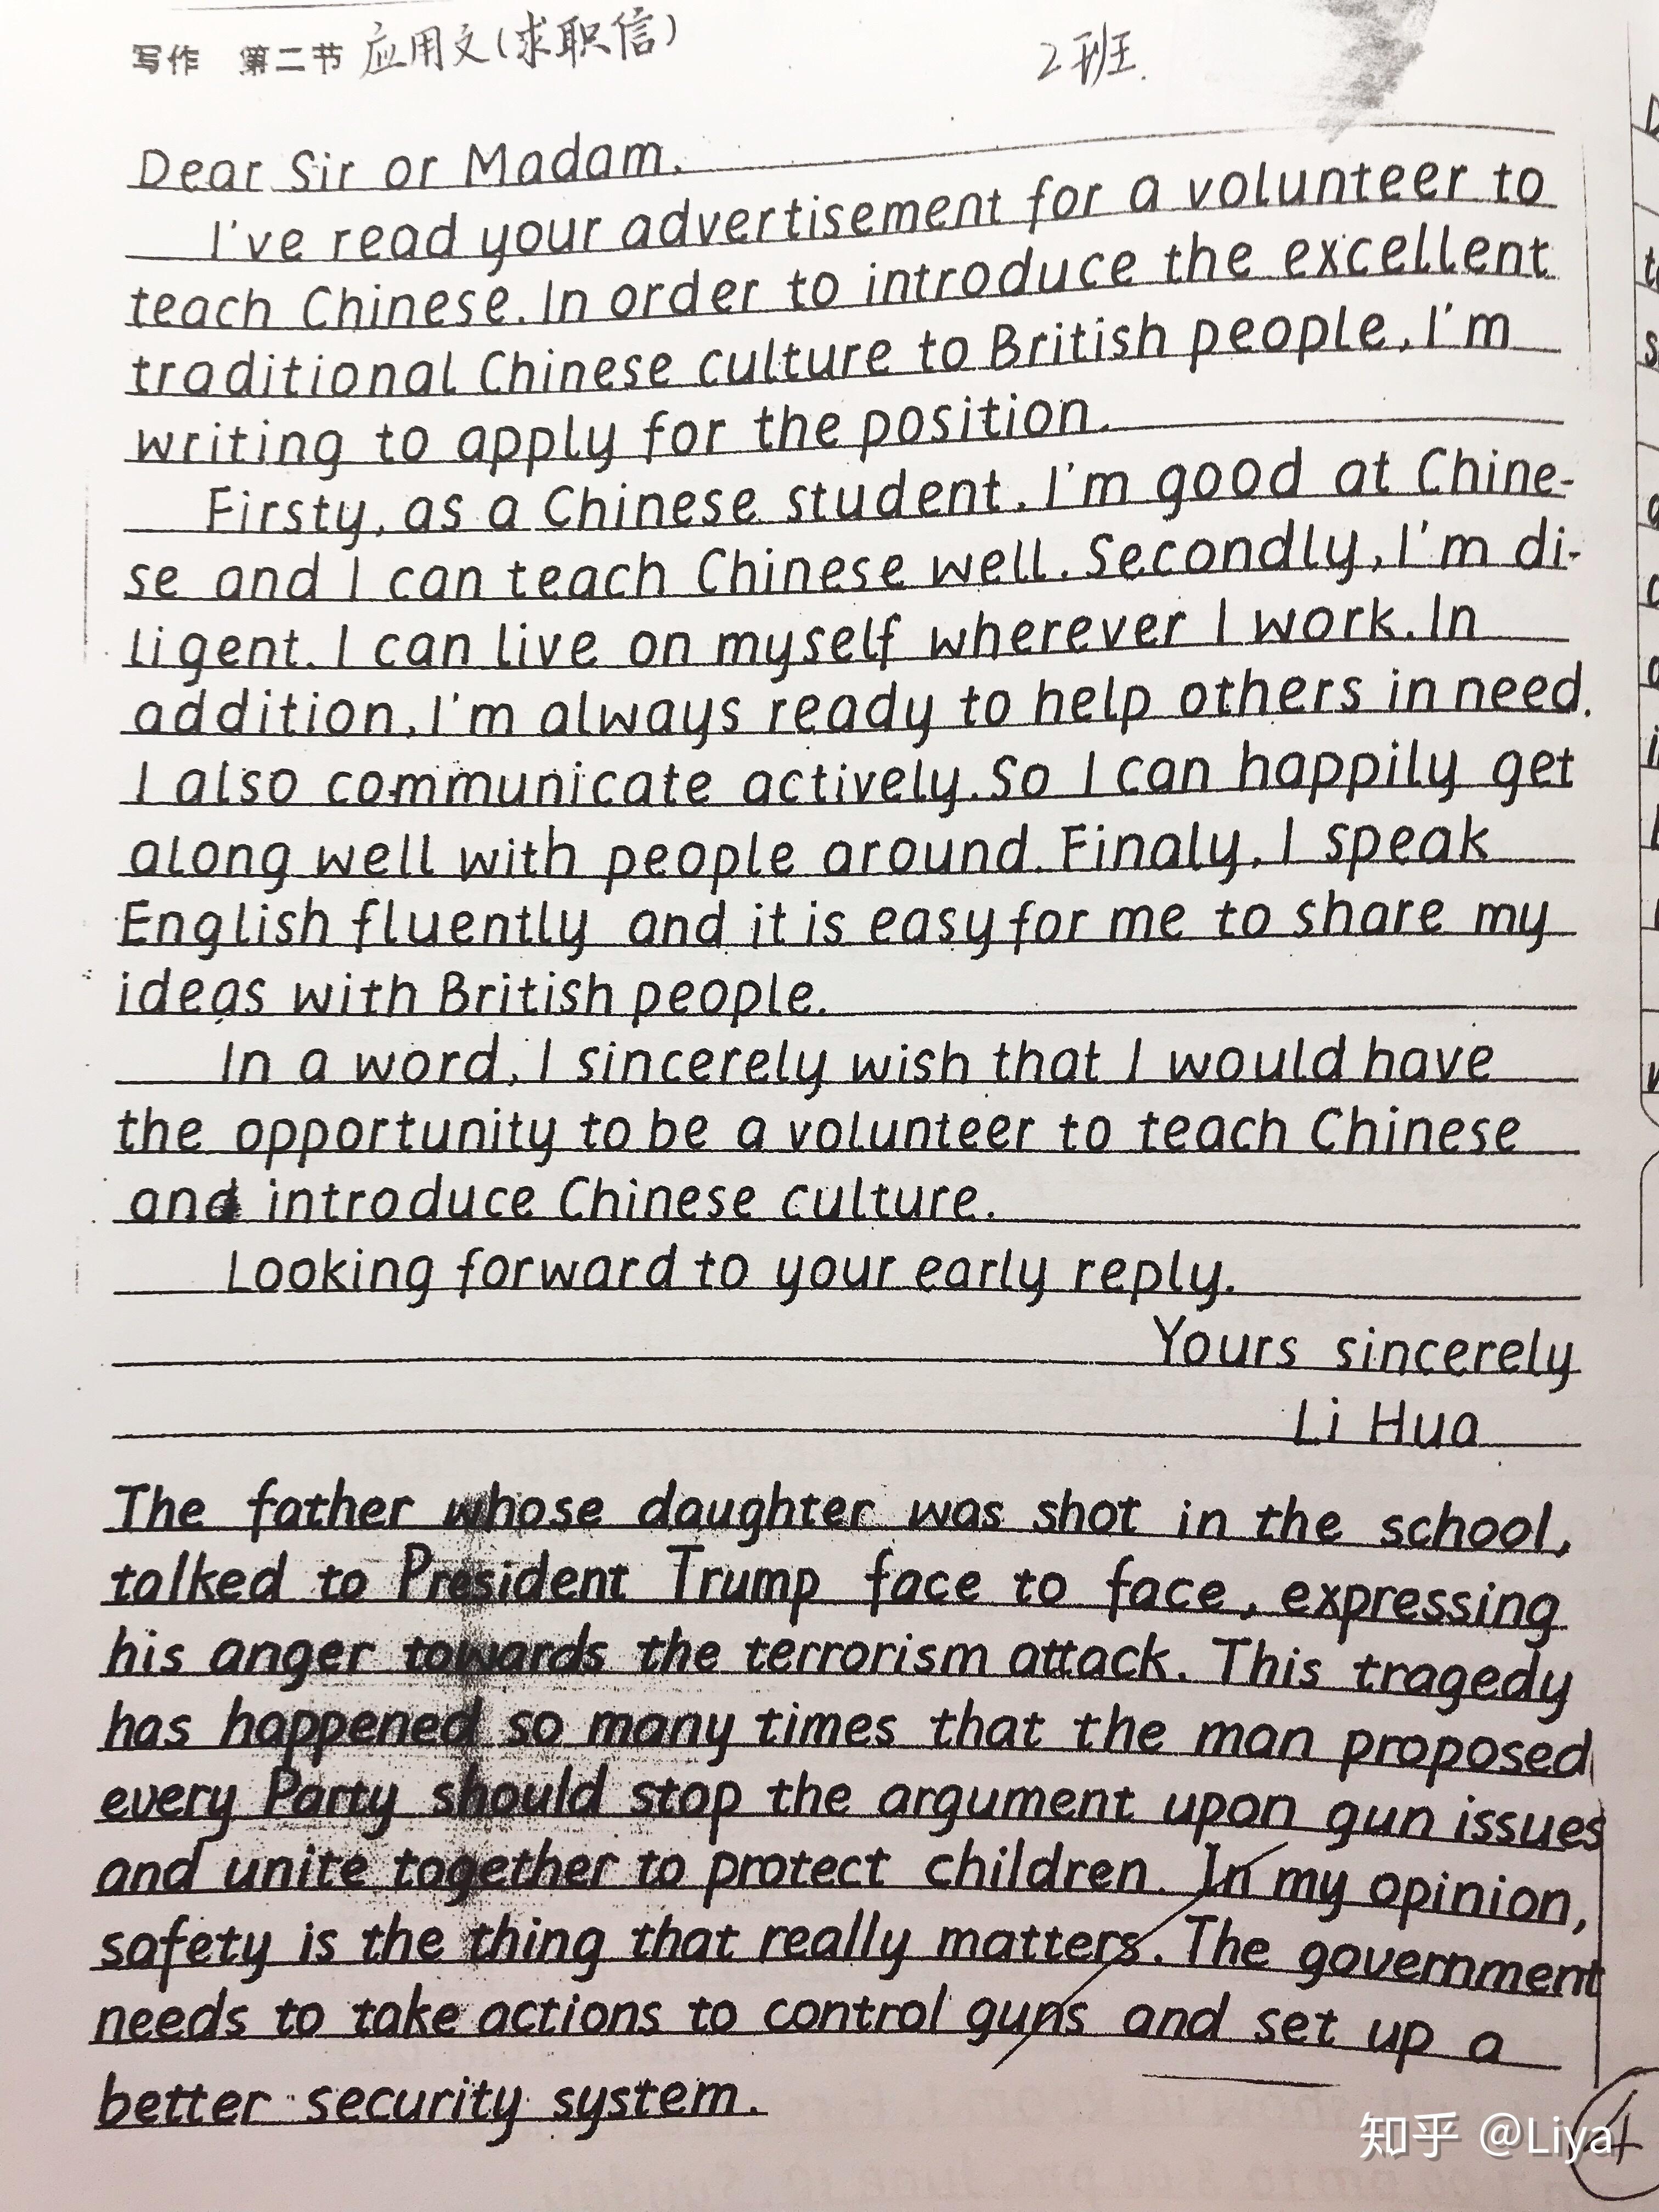 写作 第二节 应用文(求职信) 2班.
Dear Sir or Madam.
I've read your advertisement for a volunteer to
teach Chinese. In order to introduce the excellent
traditional Chinese culture to British people, I'm
writing to apply for the position.
Firsty, as a Chinese student, I'm good at Chine-
se and I can teach Chinese well. Secondly, I'm di-
ligent. I can live on myself wherever I work. In
addition, I'm always ready to help others in need.
I also communicate actively. So I can happily get
along well with people around. Finaly, I speak
English fluently and it is easy for me to share my
ideas with British people.
In a word, I sincerely wish that I would have
the opportunity to be a volunteer to teach Chinese
and introduce Chinese culture.
Looking forward to your early reply.
Yours sincerely
Li Hua
The father whose daughter was shot in the school,
talked to President Trump face to face, expressing
his anger towards the terrorism attack. This tragedy
has happened so many times that the man proposed
every Party should stop the argument upon gun issues
and unite together to protect children. In my opinion,
safety is the thing that really matters. The government
needs to take actions to control guns and set up a
better security system.
知乎 @Liya